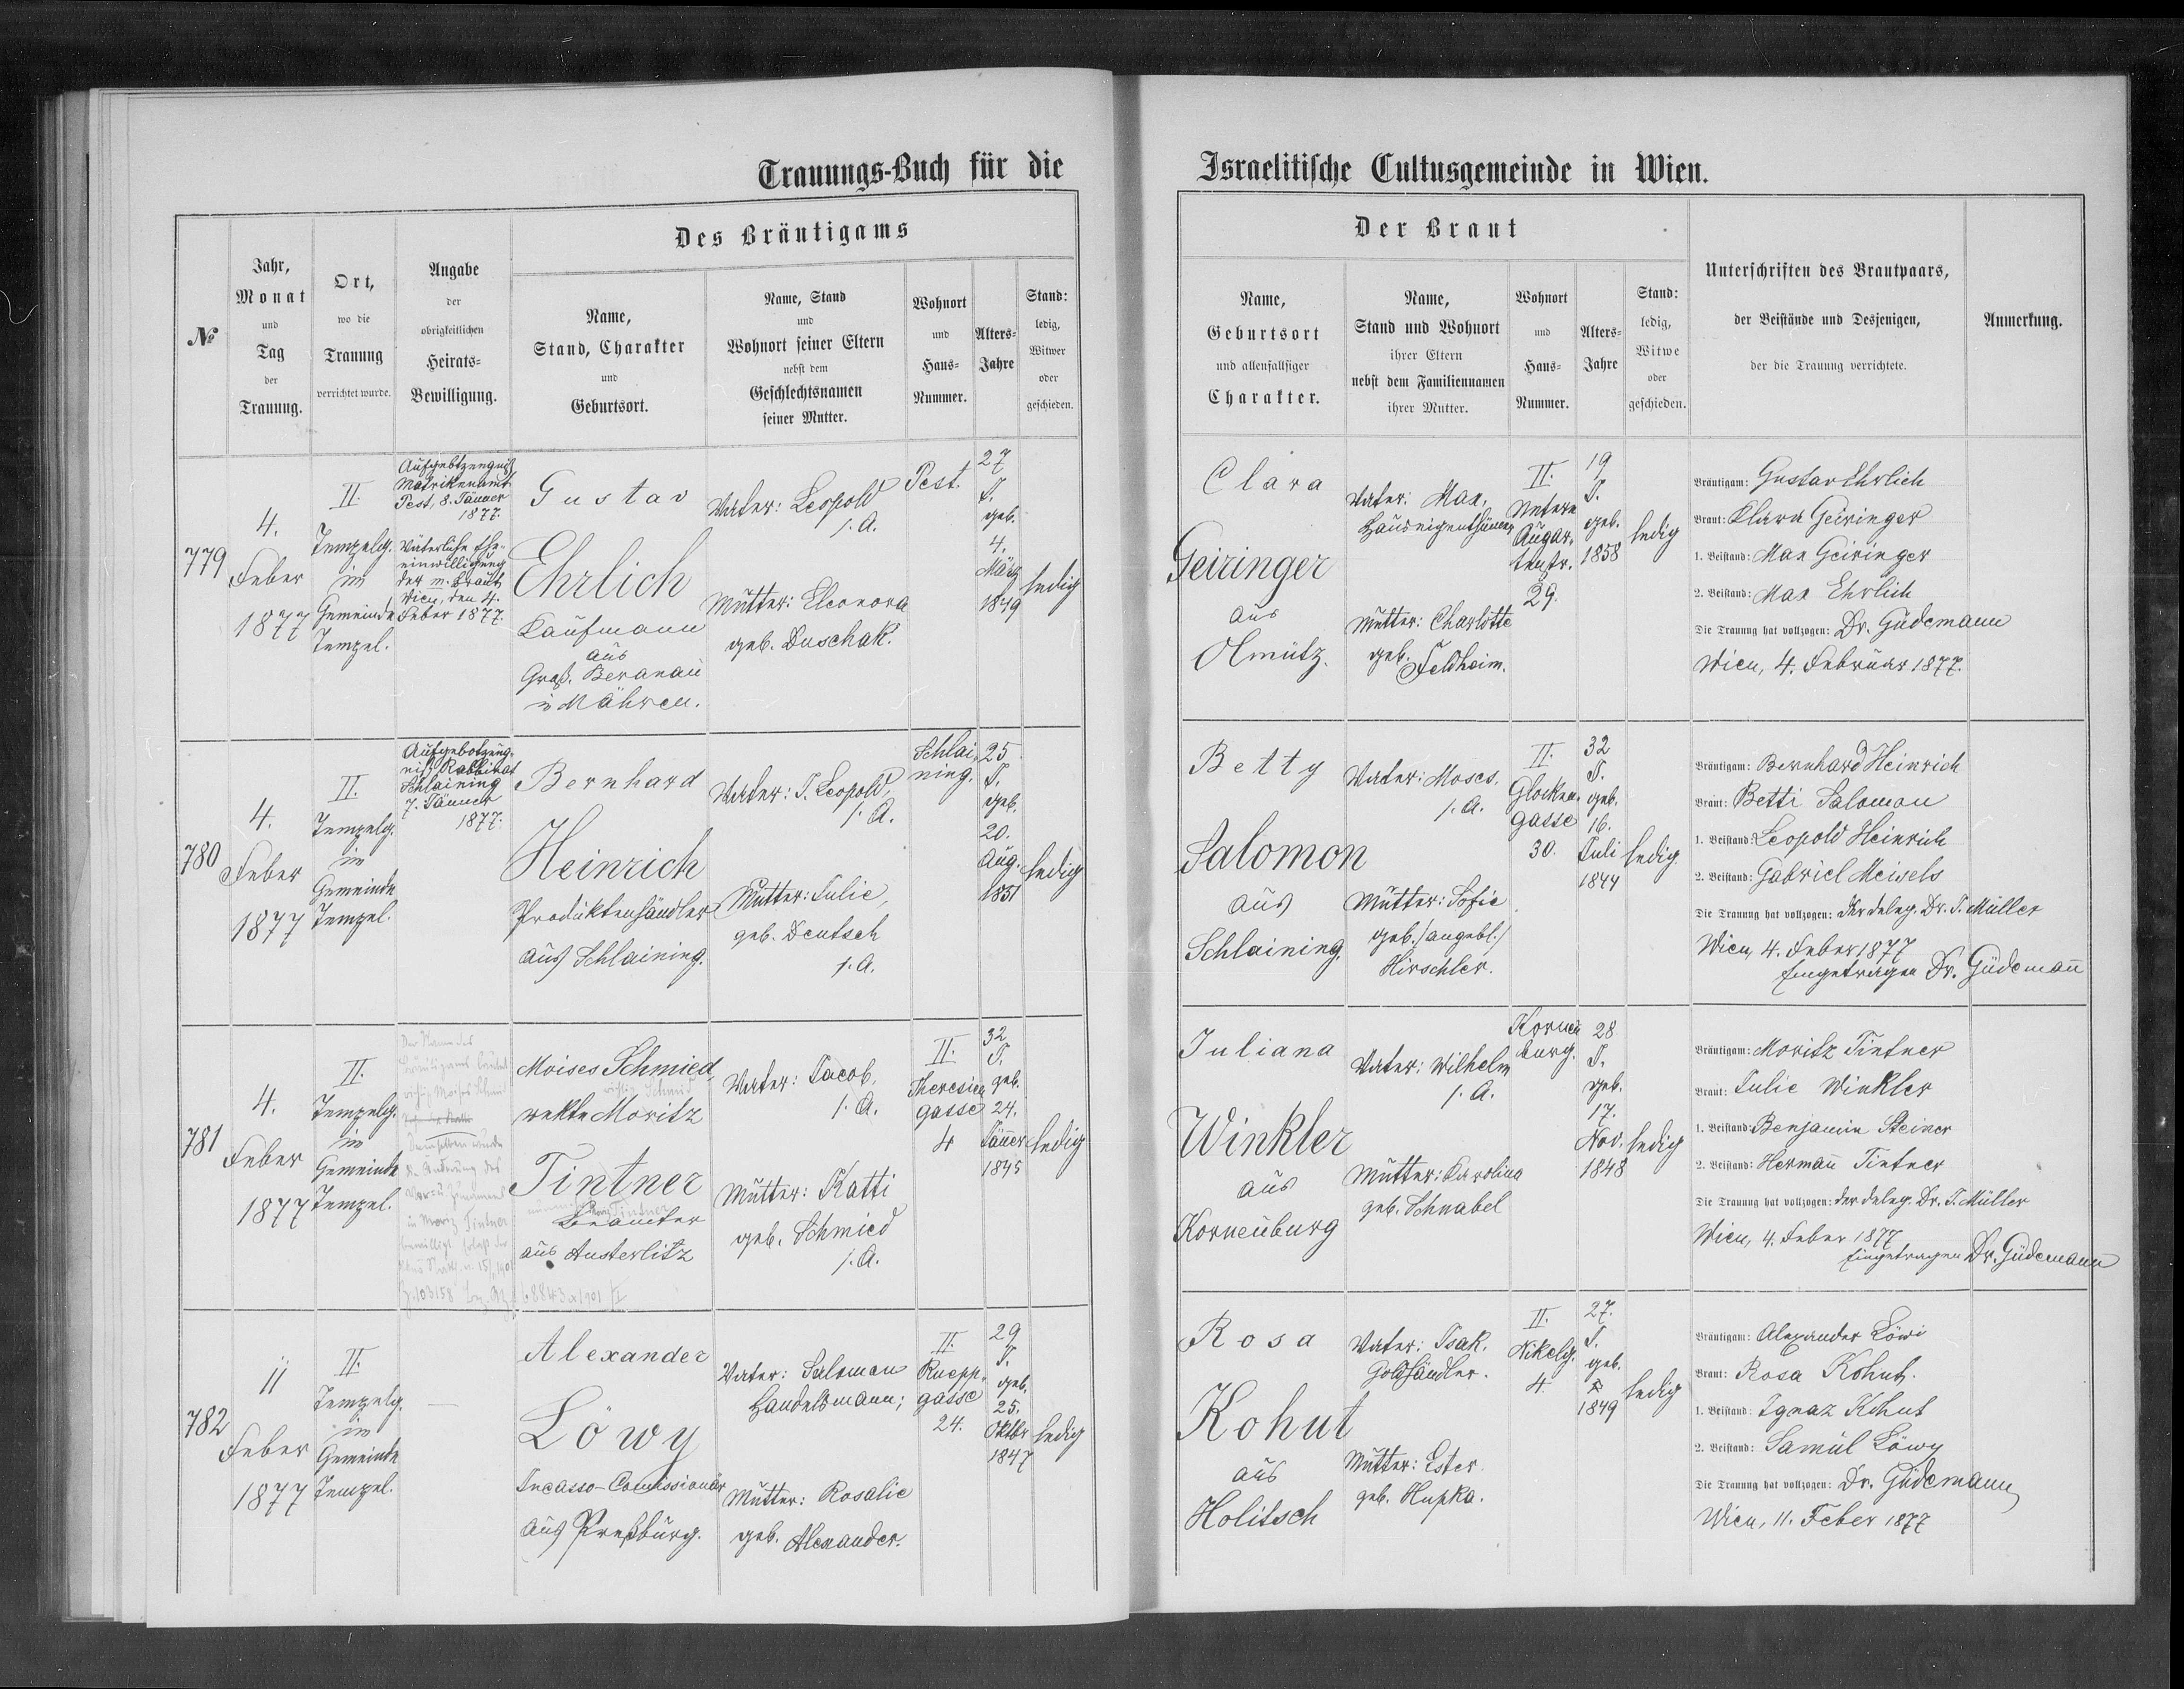 Trauungs-Buch für die
Israelitische Cultusgemeinde in Wien.
№
Jahr,
Monat
und
Tag
der
Trauung.
Ort,
wo die
Trauung
verrichtet wurde.
Angabe
der
obrigkeitlichen
Heirats-
Bewilligung.
Des Bräutigams
Name,
Stand, Charakter
und
Geburtsort.
Name, Stand
und
Wohnort seiner Eltern
nebst dem
Geschlechtsnamen
seiner Mutter.
Wohnort
und
Haus-
Nummer.
Alters-
Jahre
Stand:
ledig,
Witwer
oder
geschieden.
Der Braut
Name,
Geburtsort
und allenfallsiger
Charakter.
Name,
Stand und Wohnort
ihrer Eltern
nebst dem Familiennamen
ihrer Mutter.
Wohnort
und
Haus-
Nummer.
Alters-
Jahre
Stand:
ledig,
Witwe
oder
geschieden.
Unterschriften des Brautpaars,
der Beistände und Desjenigen,
der die Trauung verrichtete.
Anmerkung.
779
4.
Feber
1877
II.
Tempelg.
im
Gemeinde
Tempel.
Aufgebtzeugniß
Matrikenamt
Pest, 8. Jänner
1877.
Väterliche Ehe-
einwilligung
der m. Braut
Wien, den 4.
Feber 1877.
Gustav
Ehrlich
Kaufmann
aus
Groß. Beranau
in Mähren.
Vater: Leopold
i. A.
Mutter: Eleonora
geb. Duschak.
Pest.
27
J.
geb.
4.
März
1849
ledig
Clara
Geiringer
aus
Olmütz.
Vater: Max,
Hauseigenthümer
Mutter: Charlotte
geb.
Feldheim.
II.
Untere
Augar-
tenstr.
29.
19
J.
geb.
1858
ledig
Bräutigam: Gustav Ehrlich
Braut: Klara Geiringer
1. Beistand: Max Geiringer
2. Beistand: Max Ehrlich
Die Trauung hat vollzogen: Dr. Güdemann
Wien, 4. Februar 1877.
780
4.
Feber
1877
II.
Tempelg.
im
Gemeinde
Tempel.
Aufgebotzeug-
niß Rabbinat
Schlaining
7. Jänner
1877.
Bernhard
Heinrich
Produktenhändler
aus Schlaining.
Vater: J. Leopold,
i. A.
Mutter: Julie,
geb. Deutsch
i. A.
Schlai-
ning.
25
J.
geb.
20.
Aug.
1851
ledig
Betty
Salomon
aus
Schlaining.
Vater: Moses.
i. A.
Mutter: Sofie
geb. /angebl./
Hirschler.
II.
Glocken-
gasse
30.
32
J.
geb.
16.
Juli
1844
ledig
Bräutigam: Bernhard Heinrich
Braut: Betti Salomon
1. Beistand: Leopold Heinrich
2. Beistand: Gabriel Meisels
Die Trauung hat vollzogen: Der deleg. Dr. J. Müller
Wien, 4. Feber 1877
Eingetragen Dr. Güdemañ
781
4.
Feber
1877
II.
Tempelg.
im
Gemeinde
Tempel.
Der Name des
Bräutigams lautet
richtig Moises Schmied
Demselben wurde
die Änderung des
in Moriz Tintner
bewilligt
Z. 103158
Moises Schmied,
richtig Schmid
rekte Moritz
Tintner
Moriz Tintner
Beamter
aus Austerlitz
Vater: Jacob,
i. A.
Mutter: Katti
geb. Schmied
i. A.
II.
Theresien
gasse
4
32
J.
geb.
24.
Jäñer
1845
ledig
Juliana
Winkler
aus
Korneuburg
Vater: Wilhelm
i. A.
Mutter: Karolina
geb. Schnabel
Korneu
burg.
28
J.
geb.
17.
Nov.
1848
ledig
Bräutigam: Moritz Tintner
Braut: Julie Winkler
1. Beistand: Benjamin Steiner
2. Beistand: Hermañ Tintner
Die Trauung hat vollzogen: der deleg. Dr. J. Müller
Wien, 4. Feber 1877
Eingetragen Dr. Güdemann
782
11
Feber
1877
II.
Tempelg.
im
Gemeinde
Tempel.
Alexander
Löwy
Incasso-Comissionär
aus Preßburg.
Vater: Salomon
Handelsmann;
Mutter: Rosalie
geb. Alexander.
II.
Ruepp-
gasse
24.
29
J.
geb.
25.
Oktbr
1847
ledig
Rosa
Kohut
aus
Holitsch
Vater: Isak.
Holzhändler.
Mutter: Ester
geb. Hupka.
II.
Nikelg.
4.
27.
J.
geb.
1849
ledig
Bräutigam: Alexander Löwi
Braut: Rosa Kohut.
1. Beistand: Ignaz Kohut
2. Beistand: Samül Löwy
Die Trauung hat vollzogen: Dr. Güdemann
Wien, 11. Feber 1877